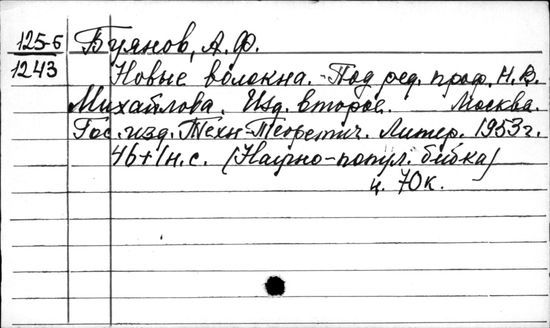 125-6
1243
Буянов, А. Ф.
Новые волокна. Под ред. проф. Н. В.
Михайлова. Изд. второе. Москва.
Гос. изд. Техн-Теоретич. Литер. 1953 г.
46+1 н. с. (Научно-попул. б-ка)
ц. 70 к.